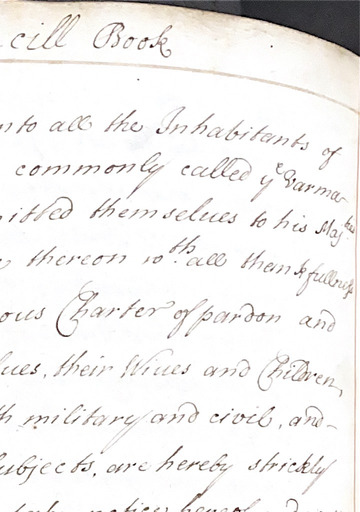 cill Book
nto all the Inhabitants of
commonly called yᵉ Varma-
itted themselues to his Maj
thereon wᵗʰ all thankfullness
ous Charter of pardon and
lues, their Wiues and Children,
h military and civil, and
ubjects, are hereby strickly
notice hereof